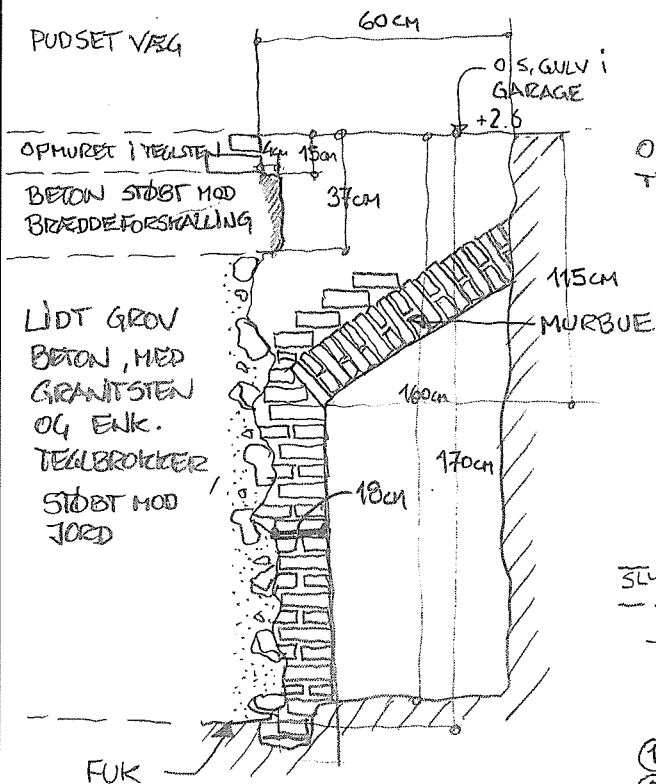 PUDSET VÆG
60CM
O S. GULV i
GARAGE
+2.6
OPMURET I TEGLSTEN
4cm
15cm
BETON STØBT MOD
BRÆDDEFORSKALLING
37CM
115CM
MURBUE
LIDT GROV
BETON, MED
GRANITSTEN
OG ENK.
TEGLBROKKER
STØBT MOD
JORD
160cm
170cm
18cm
FUK